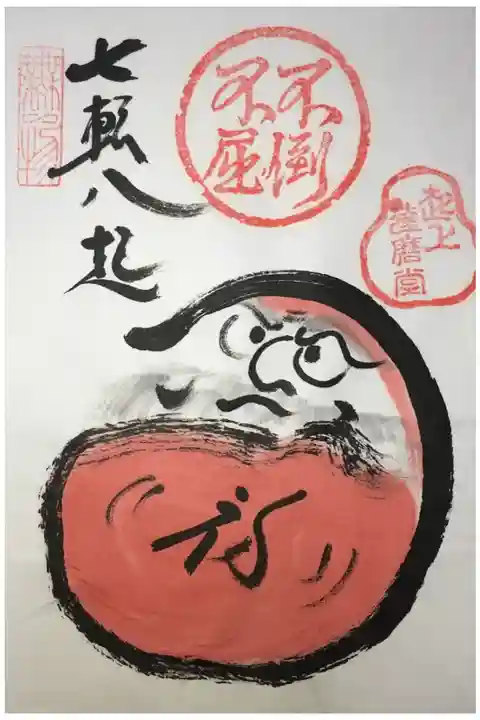 起上
達磨堂
不倒
不屈
七転八起